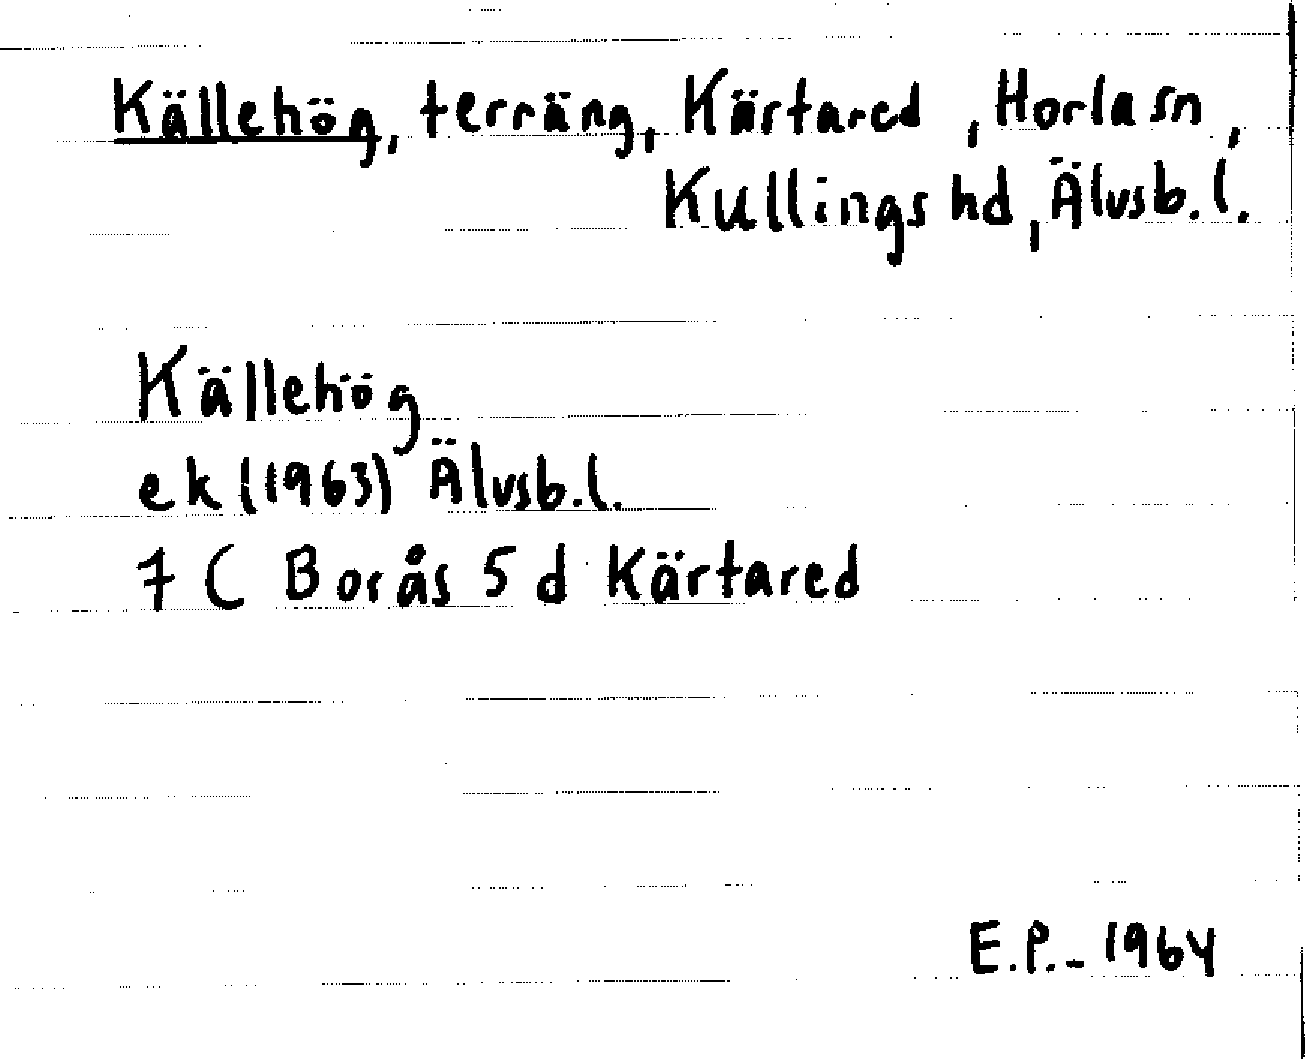 Källehög, terräng, Kärtared, Horla sn,
Kullings hd, Älvsb.l.
Källehög
ek (1963) Älvsb.l.
7 C Borås 5 d Kärtared
E.P.-1964